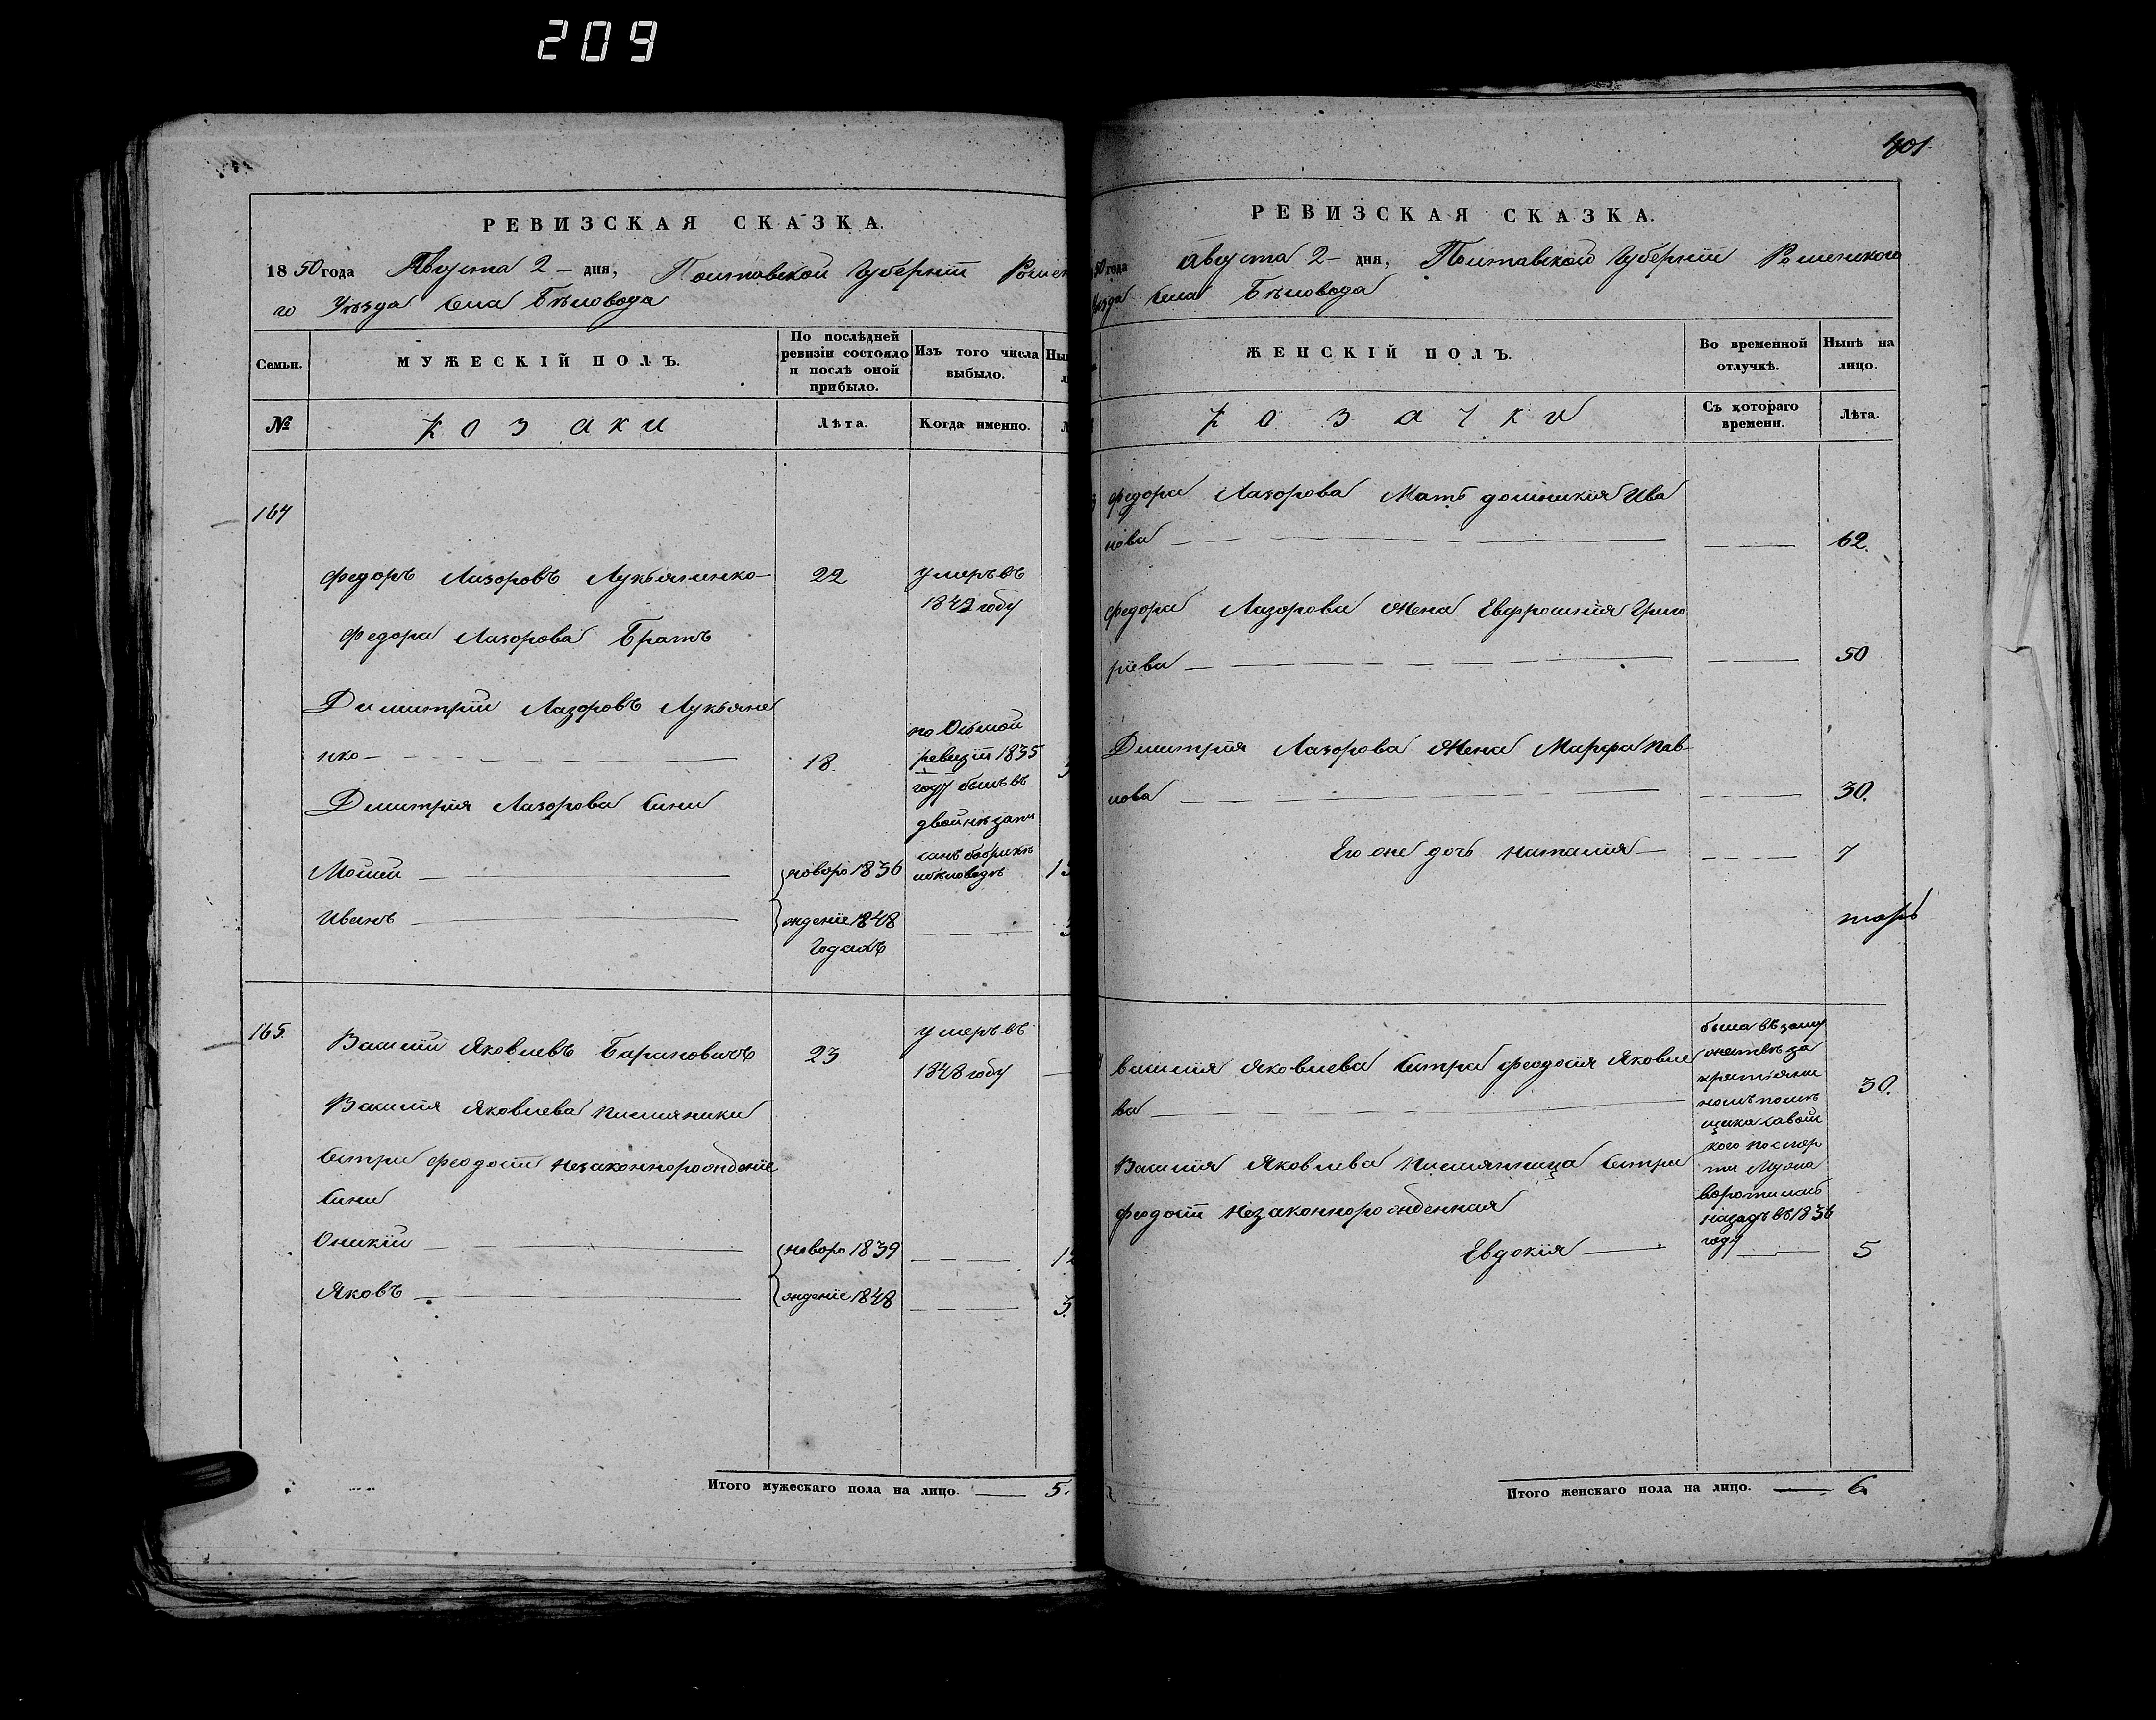 209
РЕВИЗСКАЯ СКАЗКА.
1850 года Августа 2 – дня, Полтавской Губерніи Ромен
го Уѣзда Села Бѣловода
Семьи.
МУЖЕСКІЙ ПОЛЪ.
По послѣдней ревизіи состояло и послѣ оной прибыло.
Изъ того числа выбыло.
№
Козаки
Лѣта.
Когда именно.
164
Федоръ Лазоровъ Лукьяненко – 22 умеръ въ
1842 году
Федора Лазорова Братъ
Димитрій Лазоровъ Лукьяне
нко – 18.
по Осьмой
ревизіи 1835
году былъ въ
двойнѣ запи
Дмитрія Лазорова Сыни
Мойсей – новоро 1836
Иванъ – ждение 1848
Годахъ
165. Василій Яковлевъ Барановичъ 23 умеръ въ
1848 году
Василія Яковлева племяники
Сестри Феодосіи незаконнорожденіе
Сини
Оникій – новоро 1839 12
Яковъ – ждение 1848 3.
Итого мужескаго пола на лицо. — 5.
401.
РЕВИЗСКАЯ СКАЗКА.
50 года Августа 2 – дня, Полтавской Губерніи Роменского
Уѣзда Села Бѣловода
ЖЕНСКІЙ ПОЛЪ.
Во временной отлучкѣ.
Нынѣ на лицо.
Козачки
Съ котораго времени.
Лѣта.
Федора Лазорова Мать Домникия Ива
нова – 62.
Федора Лазорова Жена Евфросинія Григо
ріева – 50
Дмитрія Лазорова Жена Марфа Пав
лова – 30.
Его же дочь Наталія – 7
Василія Яковлева Сестра Феодосія Яковле
ва – 30.
была въ заму
жествѣ за
крестьяни
номъ помѣ
щика Савой
кого по смер
ти Мужа
воротилась
назадъ въ 1836
году
Василія Яковлева племянница Сестри
Феодосіи незаконнорожденная
Евдокія – 5
Итого женскаго пола на лицо. — 6.